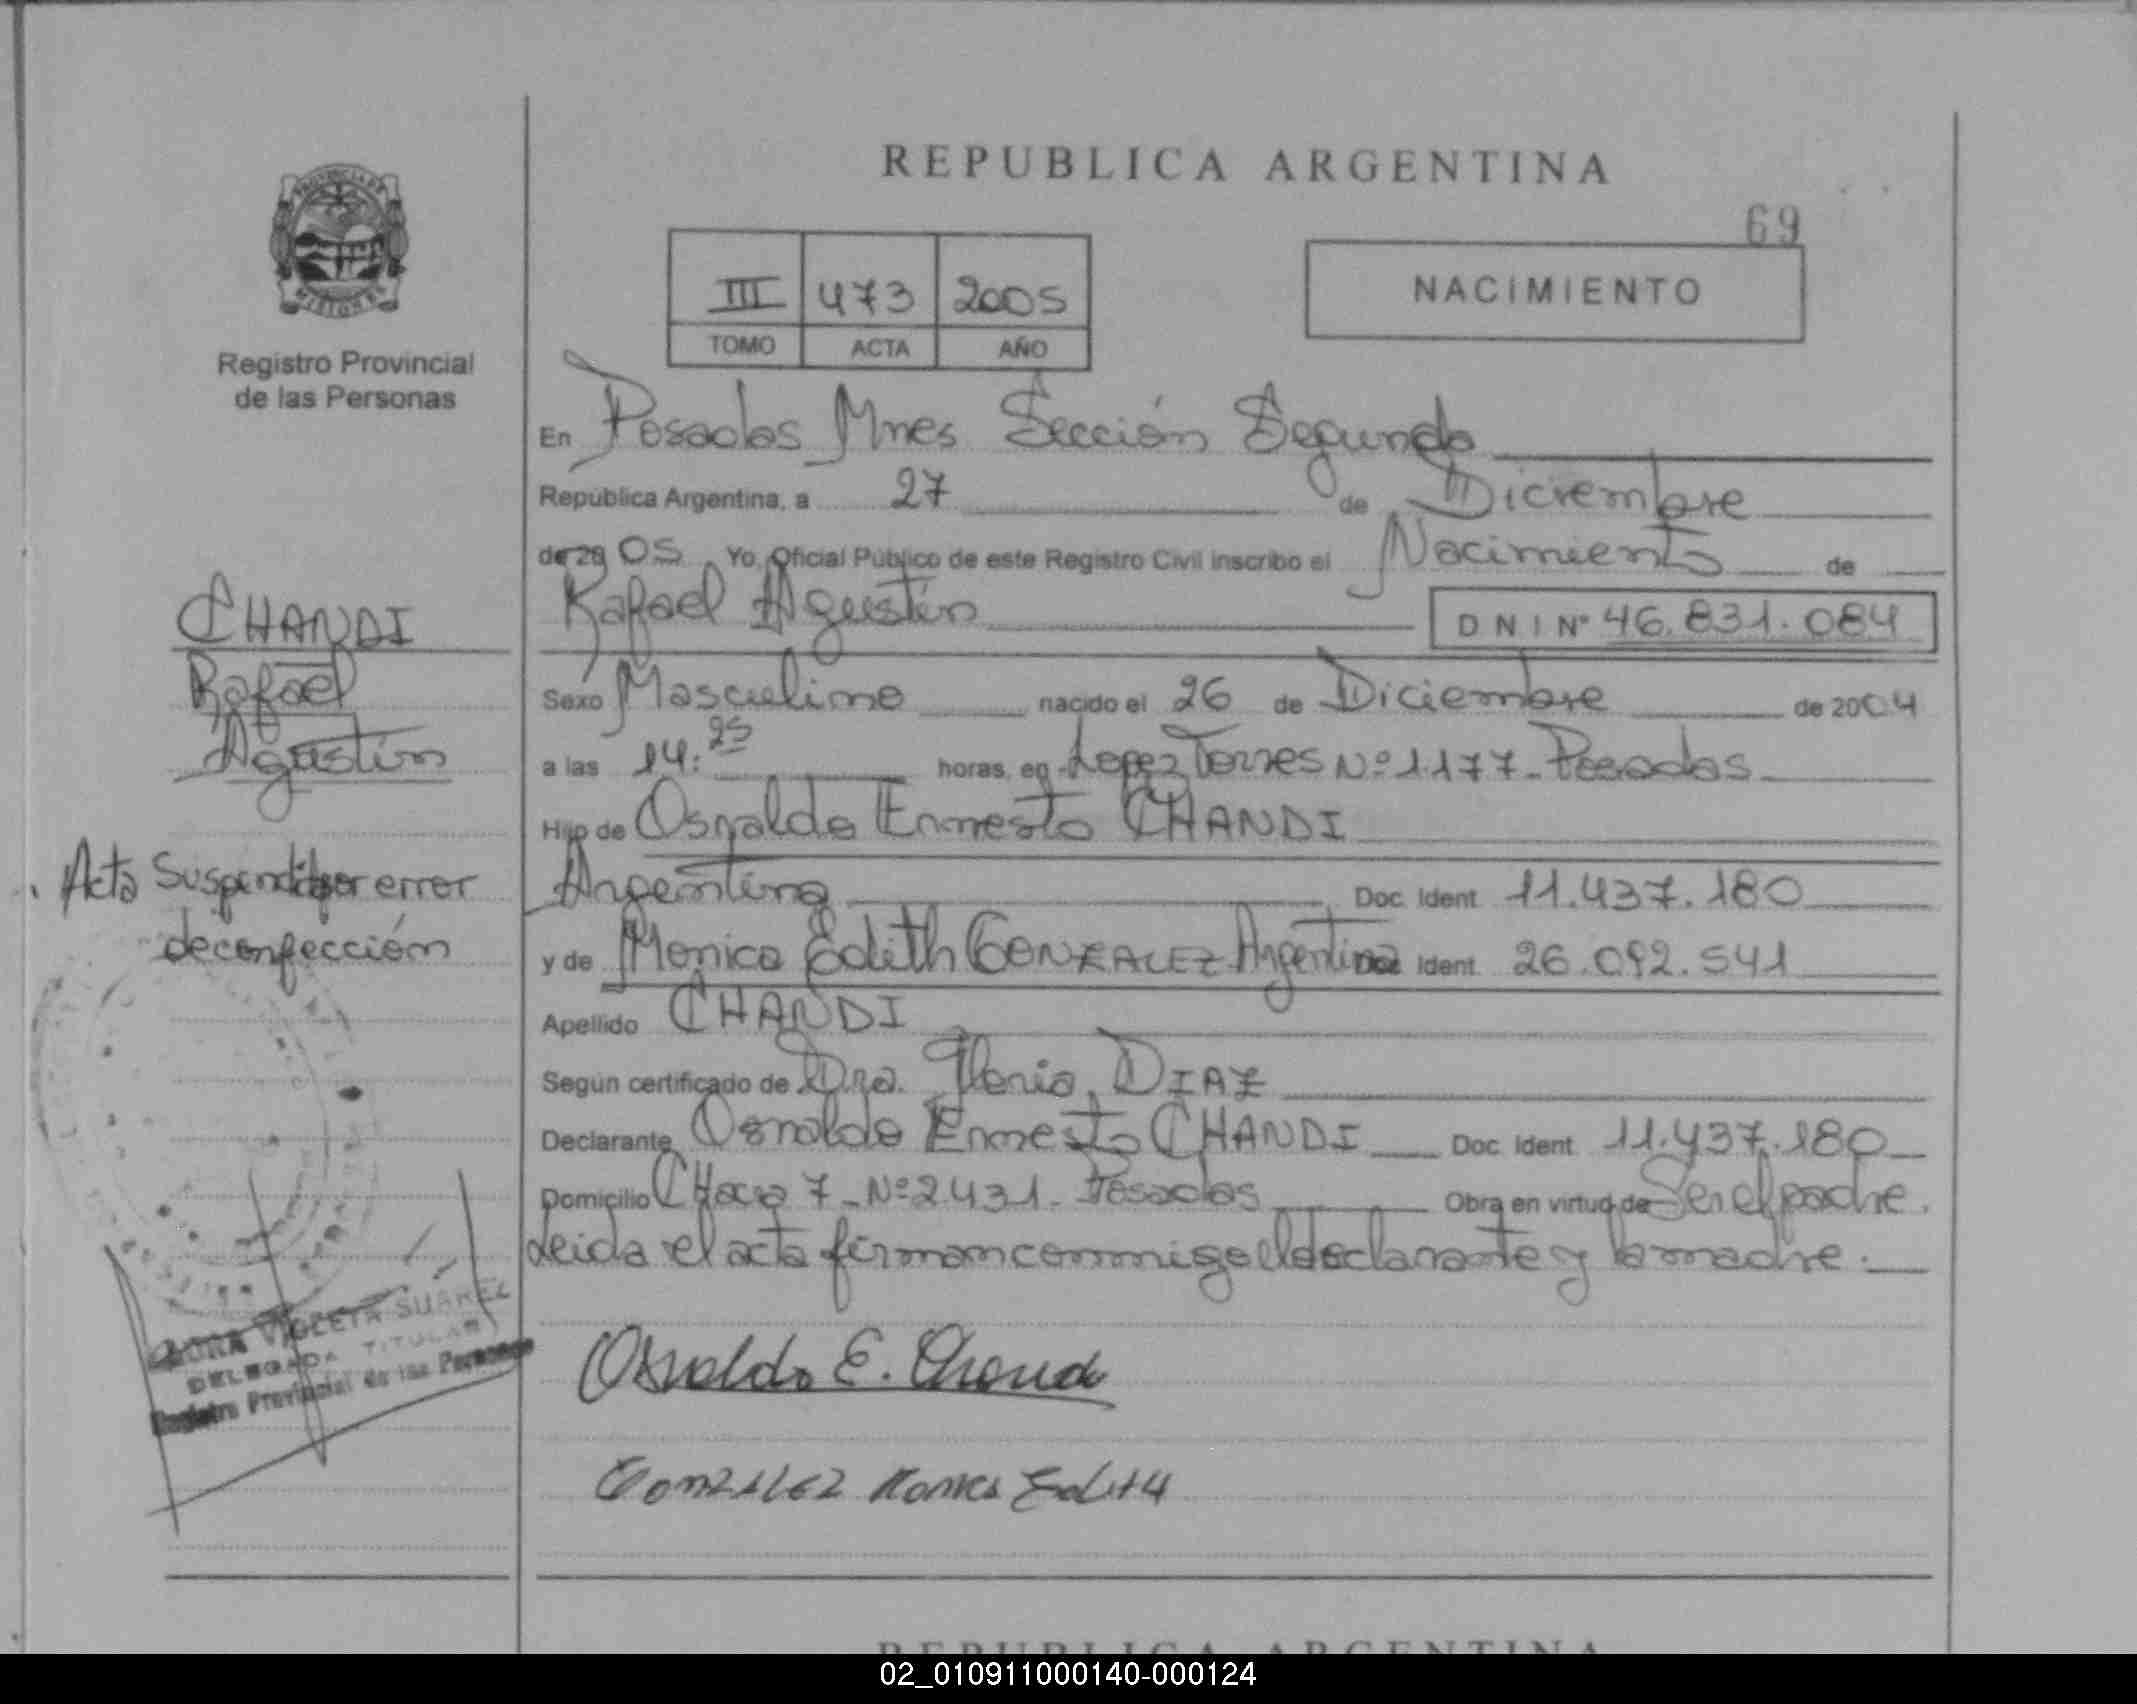 REPUBLICA ARGENTINA
69
III 473 2005
TOMO ACTA AÑO
NACIMIENTO
PROVINCIA DE
MISIONES
Registro Provincial
de las Personas
En Posadas Mnes Sección Segunda
República Argentina, a 27 de Diciembre
de 20 05 Yo, Oficial Público de este Registro Civil inscribo el Nacimiento de
Rafael Agustín DNI Nº 46.831.084
CHANDI
Rafael
Agustín
Sexo Masculino nacido el 26 de Diciembre de 2004
a las 14:25 horas, en Lopez Torres Nº 1177 - Posadas
Hijo de Osvaldo Ernesto CHANDI
Argentina Doc. Ident. 11.437.180
Acta Suspendida por error
de confección
y de Monica Edith GONZALEZ Argentina Doc. Ident. 26.092.541
Apellido CHANDI
Según certificado de Dra. DIAZ
Declarante Osvaldo Ernesto CHANDI Doc. Ident. 11.437.180
Domicilio CHacra 7 - Nº 2431 - Posadas Obra en virtud de Ser el padre.
Leida el acta firman conmigo el declarante y la madre.
VIOLETA SUAREZ
DELEGADA TITULAR
Registro Provincial de las Personas
Osvaldo E. Chandi
GONZALEZ Monica Edith
REPUBLICA ARGENTINA
02_010911000140-000124